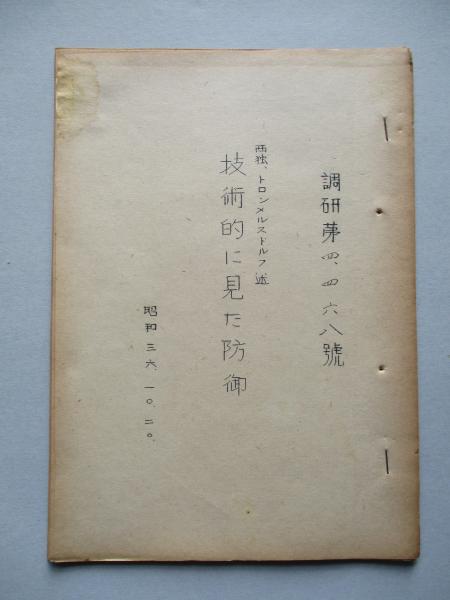 調研第四、四六八號
西独、トロンメルスドルフ述
技術的に見た防御
昭和三六、一〇、二〇、